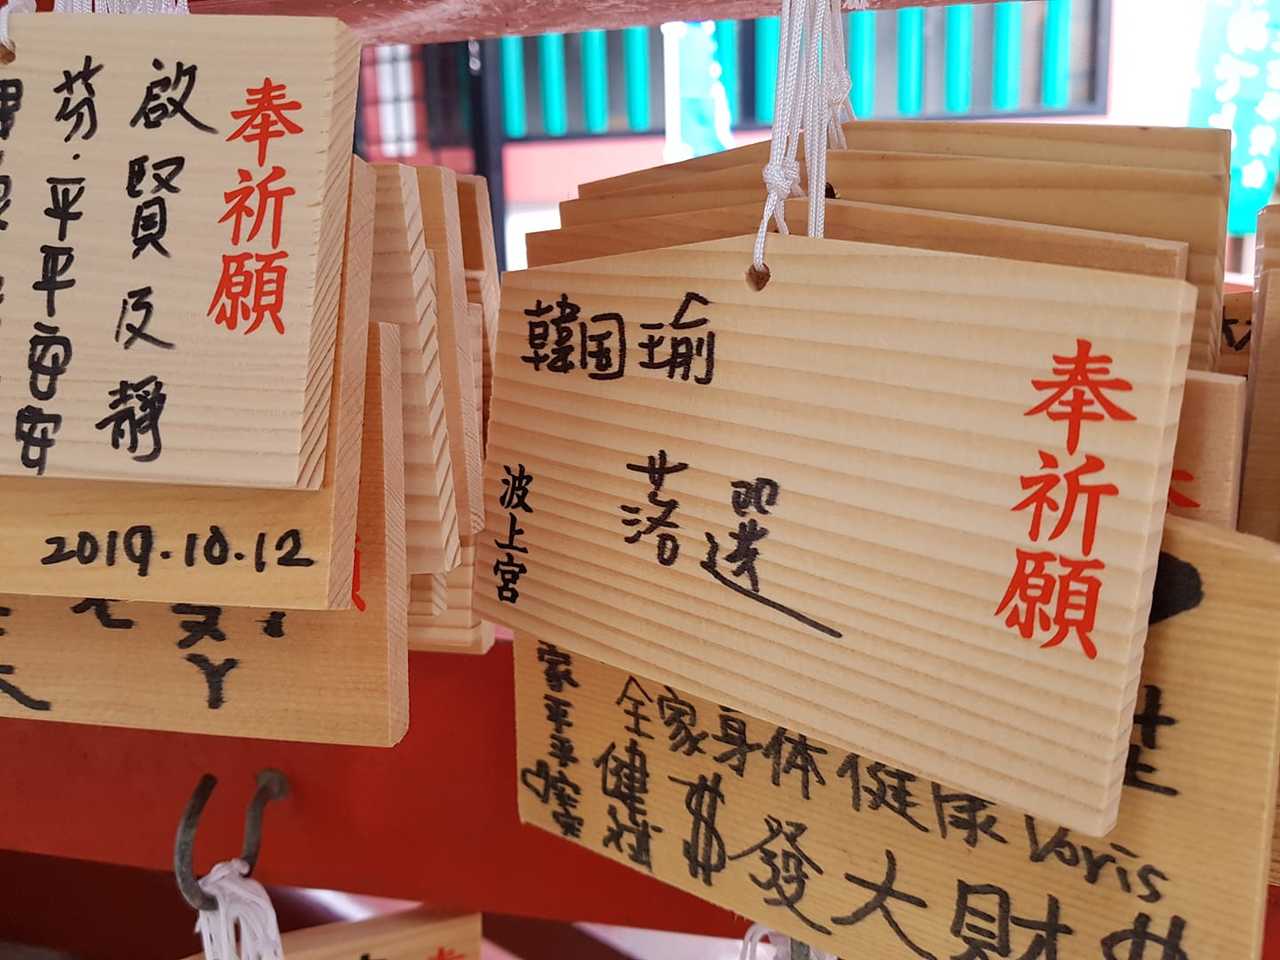 奉祈願
啟賢及靜
芬.平平安安
2019.10.12
ㄚ
奉祈願
韓国瑜
落選
波上宮
全家身体健康
Voris
健
$發大財
家平平安安